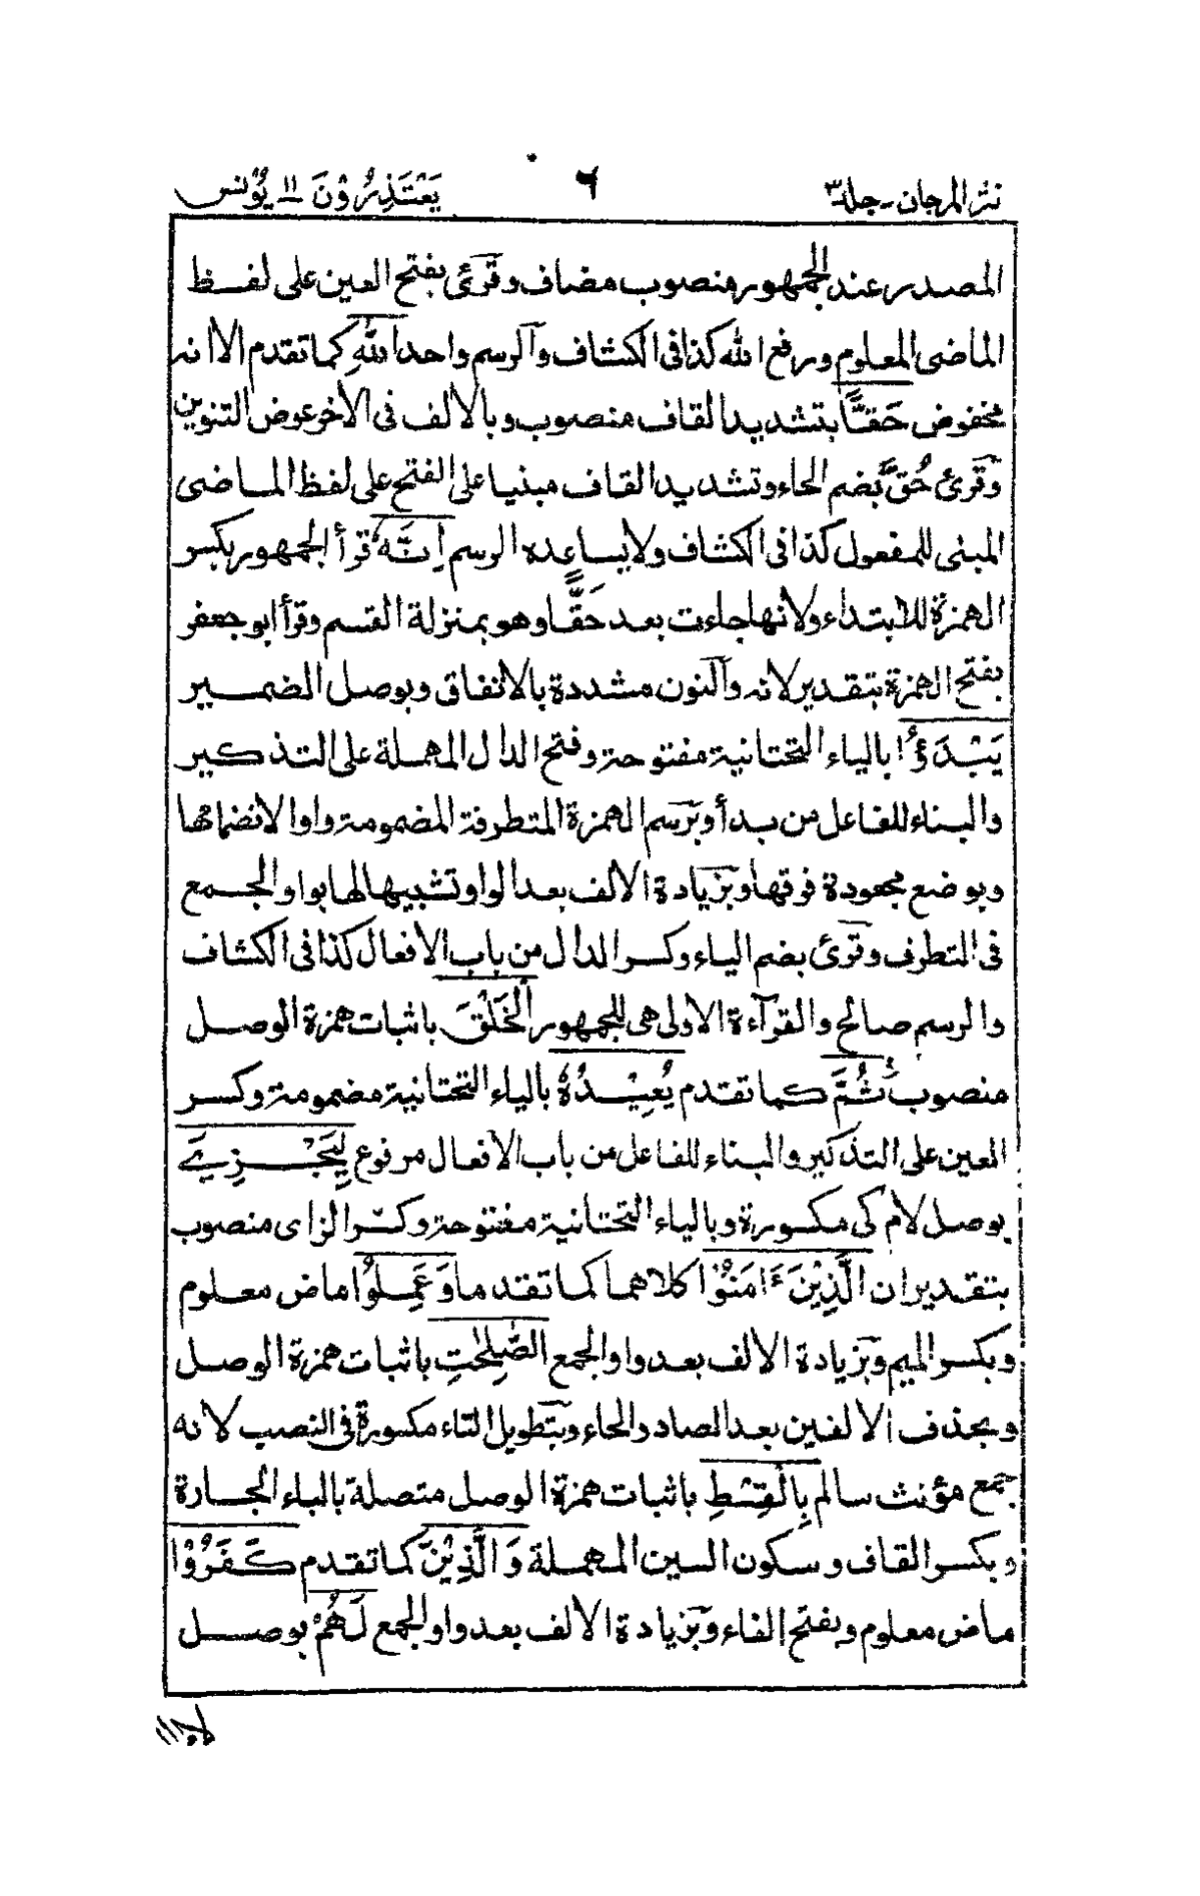 نثر المرجان - جلد ٣ ٦ يَعْتَذِرُوْنَ ١١ يُوْنس
المصدر عند الجمهور منصوب مضاف وقرئ بفتح العين على لفظ
الماضى المعلوم ورفع الله كذا فى الكشاف وآلرسم واحد اللهِ كما تقدم الا انه
مخفوض حَقًّا بتشديد القاف منصوب وبالالف فى الأخر عوض التنوين
وقرئ حُقَّ بضم الحاء وتشديد القاف مبنيا على الفتح على لفظ الماضى
المبنى للمفعول كذا فى الكشاف ولا يساعده الرسم اِنَّهٗ قرأ الجمهور بكسر
الهمزة للابتداء ولانها جاءت بعد حَقًّا وهو بمنزلة القسم وقرأ ابو جعفر
بفتح الهمزة بتقدير لانه وآلنون مشددة بالاتفاق وبوصل الضمير
يَبْدَؤُا بالياء التحتانية مفتوحة وفتح الدال المهملة على التذكير
والبناء للفاعل من بدأ وبرسم الهمزة المتطرفة المضمومة واوا لانضمامها
وبوضع مجعودة فوقها وبزيادة الالف بعد الواو تشبيها لها بواو الجمع
فى التطرف وقرئ بضم الياء وكسر الدال من باب الافعال كذا فى الكشاف
والرسم صالح والقرآءة الاولى هى للجمهور الْخَلْقَ باثبات همزة الوصل
منصوب ثُمَّ كما تقدم يُعِيْدُهٗ بالياء التحتانية مضمومة وكسر
العين على التذكير والبناء للفاعل من باب الافعال مرفوع لِيَجْزِيَ
بوصل لام كى مكسورة وبالياء التحتانية مفتوحة وكسر الزاى منصوب
بتقدير ان الَّذِيْنَ ءَامَنُوْا كلاهما كما تقدما وَعَمِلُوْا ماض معلوم
وبكسر الميم وبزيادة الالف بعد واو الجمع الصّٰلِحٰتِ باثبات همزة الوصل
وبحذف الالفين بعد الصاد والحاء وبتطويل التاء مكسورة فى النصب لانه
جمع مؤنث سالم بِالْقِسْطِ باثبات همزة الوصل متصلة بالباء الجارة
وبكسر القاف وسكون السين المهملة وَالَّذِيْنَ كما تقدم كَفَرُوْا
ماض معلوم وبفتح الفاء وبزيادة الالف بعد واو الجمع لَهُمْ بوصل